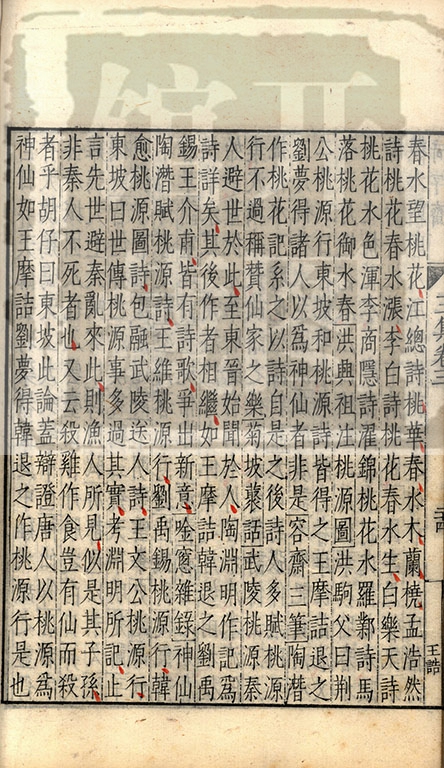 春水望桃花江總詩桃華春水木蘭橈孟浩然
詩桃花春水漲李白詩桃花春水生白樂天詩
桃花水色渾李商隱詩濯錦桃花水羅鄴詩馬
落桃花御水春洪興祖注桃源圖洪駒父曰荆
公桃源行東坡和桃源詩皆得之王摩詰退之
劉夢得諸人以為神仙者非是容齋三筆陶潛
作桃花記系之以詩自是之後詩人多賦桃源
行不過稱贊仙家之樂菊坡藂話武陵桃源秦
人避世於此至東晉始聞於人陶淵明作記為
詩詳矣其後作者相繼如王摩詰韓退之劉禹
錫王介甫皆有詩歌爭出新意唫窻雜錄神仙
陶潛賦桃源詩王維桃源行劉禹錫桃源行韓
愈桃源圖詩包融武陵送人詩王文公桃源行
東坡曰世傳桃源事多過其實考淵明所記止
言先世避秦亂來此則漁人所見似是其子孫
非秦人不死者也又云殺雞作食豈有仙而殺
者乎胡仔曰東坡此論蓋辯證唐人以桃源為
神仙如王摩詰劉夢得韓退之作桃源行是也
王誥